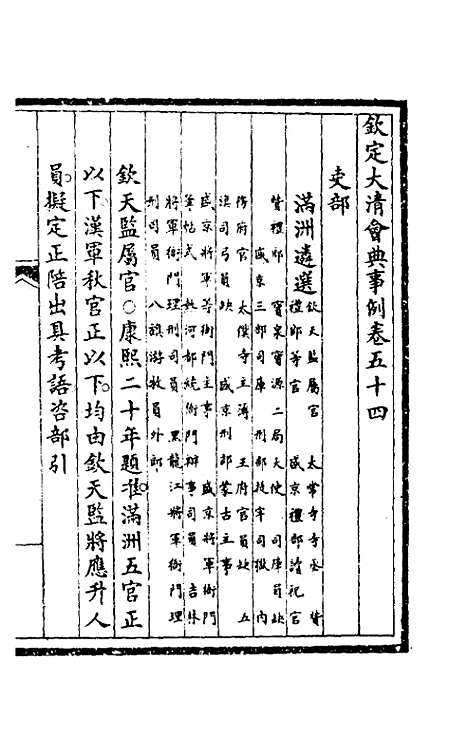 欽定大清會典事例卷五十四
吏部
滿洲遴選 欽天監屬官 太常寺寺丞 贊
禮郎等官 盛京禮部讀祝官
贊禮郎 寶泉寶源二局大使 司庫員缺
盛京三部司庫 刑部提牢司獄 內
務府官 太僕寺主簿 王府官員缺 五
旗司弓員缺 盛京刑部蒙古主事
盛京將軍等衙門主事 盛京將軍衙門
筆帖式 熱河都統衙門辦事司員 吉林
將軍衙門理刑司員 黑龍江將軍衙門理
刑司員 八旗游牧員外郎
欽天監屬官○康熙二十年題准滿洲五官正
以下漢軍秋官正以下均由欽天監將應升人
員擬定正陪出具考語咨部引